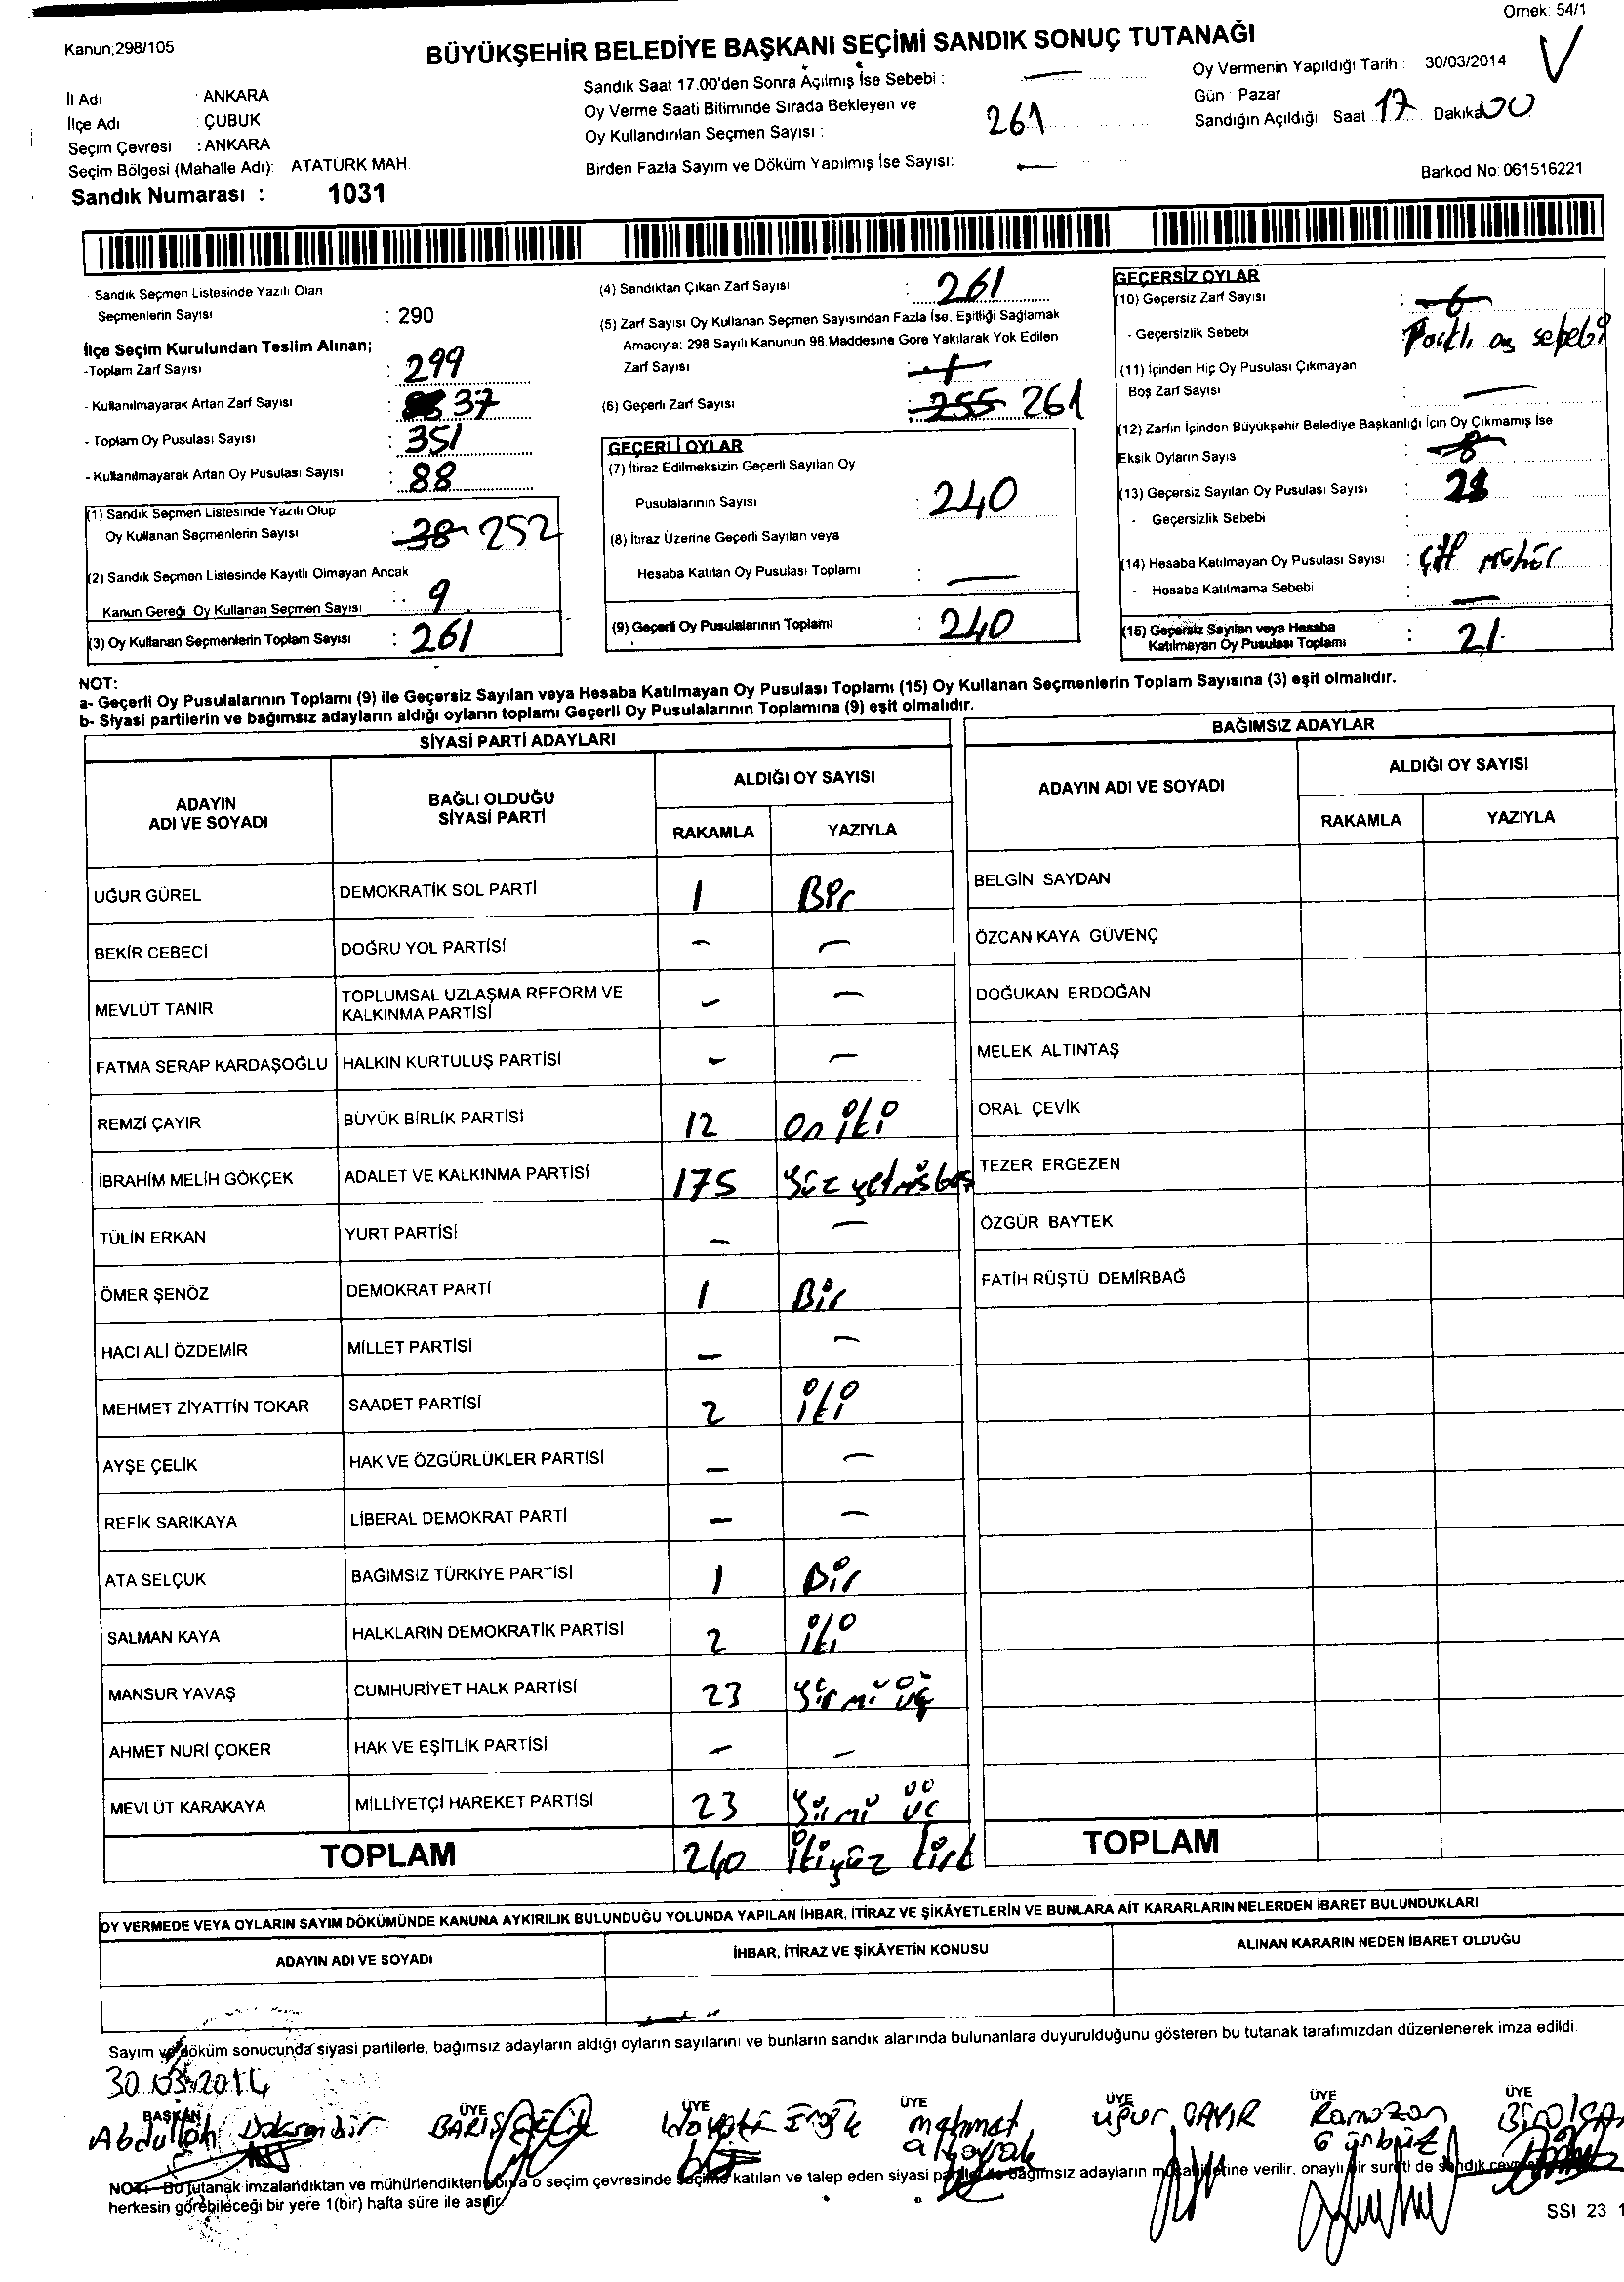 Örnek: 54/1
Kanun;298/105
BÜYÜKŞEHİR BELEDİYE BAŞKANI SEÇİMİ SANDIK SONUÇ TUTANAĞI
İl Adı : ANKARA
İlçe Adı : ÇUBUK
Seçim Çevresi : ANKARA
Seçim Bölgesi (Mahalle Adı): ATATÜRK MAH.
Sandık Numarası : 1031
Sandık Saat 17.00'den Sonra Açılmış İse Sebebi : —
Oy Verme Saati Bitiminde Sırada Bekleyen ve
Oy Kullandırılan Seçmen Sayısı : 261
Birden Fazla Sayım ve Döküm Yapılmış İse Sayısı: —
Oy Vermenin Yapıldığı Tarih : 30/03/2014
Gün : Pazar
Sandığın Açıldığı Saat 17 Dakika 00
Barkod No: 061516221
Sandık Seçmen Listesinde Yazılı Olan
Seçmenlerin Sayısı : 290
İlçe Seçim Kurulundan Teslim Alınan;
-Toplam Zarf Sayısı : 299
- Kullanılmayarak Artan Zarf Sayısı : 37
- Toplam Oy Pusulası Sayısı : 351
- Kullanılmayarak Artan Oy Pusulası Sayısı : 88
(1) Sandık Seçmen Listesinde Yazılı Olup
Oy Kullanan Seçmenlerin Sayısı 38 252
(2) Sandık Seçmen Listesinde Kayıtlı Olmayan Ancak
Kanun Gereği Oy Kullanan Seçmen Sayısı : 9
(3) Oy Kullanan Seçmenlerin Toplam Sayısı : 261
(4) Sandıktan Çıkan Zarf Sayısı : 261
(5) Zarf Sayısı Oy Kullanan Seçmen Sayısından Fazla İse. Eşitliği Sağlamak
Amacıyla: 298 Sayılı Kanunun 98.Maddesine Göre Yakılarak Yok Edilen
Zarf Sayısı
(6) Geçerli Zarf Sayısı : 255 261
GEÇERLİ OYLAR
(7) İtiraz Edilmeksizin Geçerli Sayılan Oy
Pusulalarının Sayısı : 240
(8) İtiraz Üzerine Geçerli Sayılan veya
Hesaba Katılan Oy Pusulası Toplamı : —
(9) Geçerli Oy Pusulalarının Toplamı : 240
GEÇERSİZ OYLAR
(10) Geçersiz Zarf Sayısı : 6
- Geçersizlik Sebebi
(11) İçinden Hiç Oy Pusulası Çıkmayan
Boş Zarf Sayısı : —
(12) Zarfın İçinden Büyükşehir Belediye Başkanlığı İçin Oy Çıkmamış İse
Eksik Oyların Sayısı : 8
(13) Geçersiz Sayılan Oy Pusulası Sayısı :
- Geçersizlik Sebebi :
(14) Hesaba Katılmayan Oy Pusulası Sayısı : Çift mühür
- Hesaba Katılmama Sebebi : —
(15) Geçersiz Sayılan veya Hesaba
Katılmayan Oy Pusulası Toplamı : 21
NOT:
a- Geçerli Oy Pusulalarının Toplamı (9) ile Geçersiz Sayılan veya Hesaba Katılmayan Oy Pusulası Toplamı (15) Oy Kullanan Seçmenlerin Toplam Sayısına (3) eşit olmalıdır.
b- Siyasi partilerin ve bağımsız adayların aldığı oyların toplamı Geçerli Oy Pusulalarının Toplamına (9) eşit olmalıdır.
SİYASİ PARTİ ADAYLARI
ADAYIN ADI VE SOYADI
BAĞLI OLDUĞU SİYASİ PARTİ
ALDIĞI OY SAYISI
RAKAMLA YAZIYLA
UĞUR GÜREL DEMOKRATİK SOL PARTİ 1 Bir
BEKİR CEBECİ DOĞRU YOL PARTİSİ — —
MEVLÜT TANIR TOPLUMSAL UZLAŞMA REFORM VE KALKINMA PARTİSİ — —
FATMA SERAP KARDAŞOĞLU HALKIN KURTULUŞ PARTİSİ — —
REMZİ ÇAYIR BÜYÜK BİRLİK PARTİSİ 12 on iki
İBRAHİM MELİH GÖKÇEK ADALET VE KALKINMA PARTİSİ 175 Yüz yetmişbeş
TÜLİN ERKAN YURT PARTİSİ — —
ÖMER ŞENÖZ DEMOKRAT PARTİ 1 Bir
HACI ALİ ÖZDEMİR MİLLET PARTİSİ — —
MEHMET ZİYATTİN TOKAR SAADET PARTİSİ 2 iki
AYŞE ÇELİK HAK VE ÖZGÜRLÜKLER PARTİSİ — —
REFİK SARIKAYA LİBERAL DEMOKRAT PARTİ — —
ATA SELÇUK BAĞIMSIZ TÜRKİYE PARTİSİ 1 Bir
SALMAN KAYA HALKLARIN DEMOKRATİK PARTİSİ 2 iki
MANSUR YAVAŞ CUMHURİYET HALK PARTİSİ 23 Yirmi üç
AHMET NURİ ÇOKER HAK VE EŞİTLİK PARTİSİ — —
MEVLÜT KARAKAYA MİLLİYETÇİ HAREKET PARTİSİ 23 Yirmi üç
TOPLAM 240 ikiyüz kırk
BAĞIMSIZ ADAYLAR
ADAYIN ADI VE SOYADI
ALDIĞI OY SAYISI
RAKAMLA YAZIYLA
BELGİN SAYDAN
ÖZCAN KAYA GÜVENÇ
DOĞUKAN ERDOĞAN
MELEK ALTINTAŞ
ORAL ÇEVİK
TEZER ERGEZEN
ÖZGÜR BAYTEK
FATİH RÜŞTÜ DEMİRBAĞ
TOPLAM
OY VERMEDE VEYA OYLARIN SAYIM DÖKÜMÜNDE KANUNA AYKIRILIK BULUNDUĞU YOLUNDA YAPILAN İHBAR, İTİRAZ VE ŞİKÂYETLERİN VE BUNLARA AİT KARARLARIN NELERDEN İBARET BULUNDUKLARI
ADAYIN ADI VE SOYADI
İHBAR, İTİRAZ VE ŞİKÂYETİN KONUSU
ALINAN KARARIN NEDEN İBARET OLDUĞU
Sayım ve döküm sonucunda siyasi partilerle, bağımsız adayların aldığı oyların sayılarını ve bunların sandık alanında bulunanlara duyurulduğunu gösteren bu tutanak tarafımızdan düzenlenerek imza edildi.
30.03.2014
BAŞKAN ÜYE ÜYE ÜYE ÜYE ÜYE ÜYE
Abdullah BARIŞ mehmet uğur ÇAYIR Ramazan
NOT: Bu tutanak imzalandıktan ve mühürlendikten sonra o seçim çevresinde seçime katılan ve talep eden siyasi partiler ile bağımsız adayların müşahitlerine verilir. onaylı bir sureti de sandık
herkesin görebileceği bir yere 1(bir) hafta süre ile asılır.
SSI 23 1